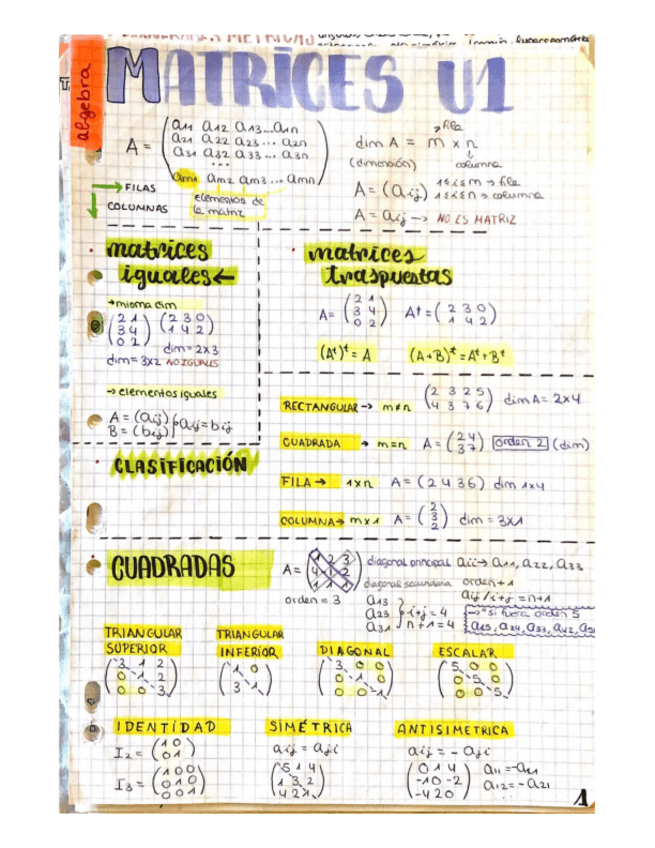 algebra
MATRICES U1
A = (a11 a12 a13...a1n
a21 a22 a23... a2n
a31 a32 a33... a3n
...
am1 am2 am3 ... amn)
→ FILAS
↓ COLUMNAS
elementos de
la matriz
dim A = m x n
fila
(dimensión)
columna
A = (aij) 1≤i≤m → fila
1≤j≤n → columna
A = aij → NO ES MATRIZ
• matrices
iguales ←
→ misma dim
(2 1
3 4
0 2)
(2 3 0
1 4 2)
dim = 2x3
dim = 3x2 NO IGUALES
→ elementos iguales
A = (aij)
B = (bij) } aij = bij
• matrices
traspuestas
A = (2 1
3 4
0 2)
At = (2 3 0
1 4 2)
(At)t = A (A+B)t = At + Bt
• CLASIFICACIÓN
RECTANGULAR → m≠n (2 3 2 5
4 3 7 6) dim A = 2x4
CUADRADA → m=n A = (2 4
3 7) orden 2 (dim)
FILA → 1xn A = (2 4 3 6) dim 1x4
COLUMNA → m x 1 A = (2
3
2) dim = 3x1
• CUADRADAS
A = (1 2 3
4 1 2
1 1 1)
orden = 3
diagonal principal aii → a11, a22, a33
diagonal secundaria orden+1
aij / i+j = n+1
a13
a23
a31 } i+j = 4
n+1 = 4
→ "si fuera orden 5
a15, a24, a33, a42, a5
TRIANGULAR
SUPERIOR
(3 1 2
0 1 2
0 0 3)
TRIANGULAR
INFERIOR
(1 0
3 1)
DIAGONAL
(3 0 0
0 1 0
0 0 1)
ESCALAR
(5 0 0
0 5 0
0 0 5)
IDENTIDAD
I2 = (1 0
0 1)
I3 = (1 0 0
0 1 0
0 0 1)
SIMÉTRICA
aij = aji
(5 1 4
1 3 2
4 2 1)
ANTISIMETRICA
aij = - aji
(0 1 4
-1 0 -2
-4 2 0)
a11 = -a11
a12 = -a21
1